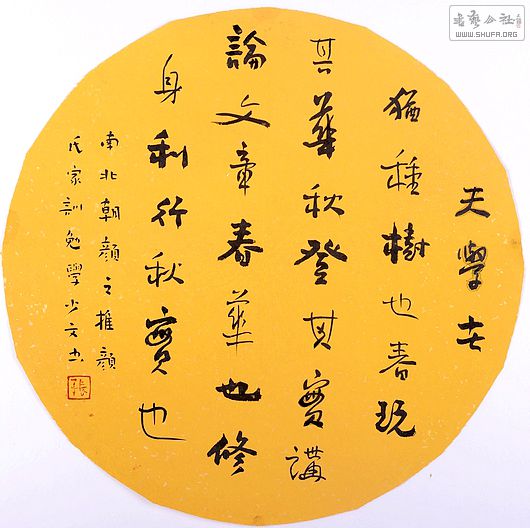 夫學者
猶種樹也春玩
其華秋登其實講
論文章春華也修
身利行秋實也
南北朝顏之推顏
氏家訓勉學少文书
書藝公社
WWW.SHUFA.ORG